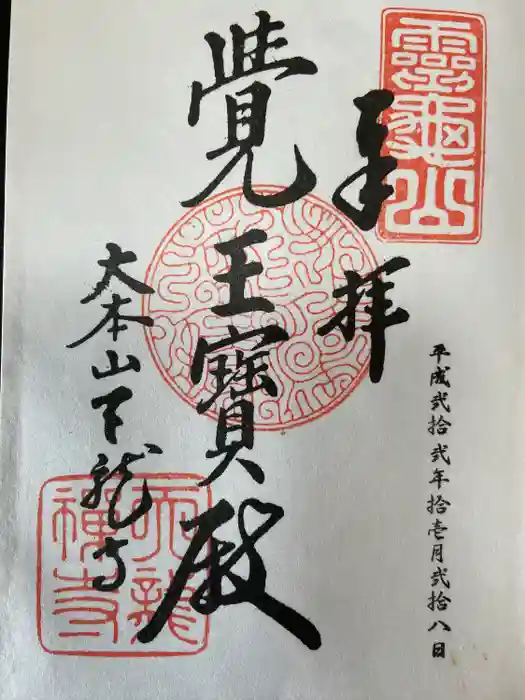 靈龜山
奉拝
平成弐拾弐年拾壱月弐拾八日
覺王寶殿
大本山天龍寺
天龍
禪寺